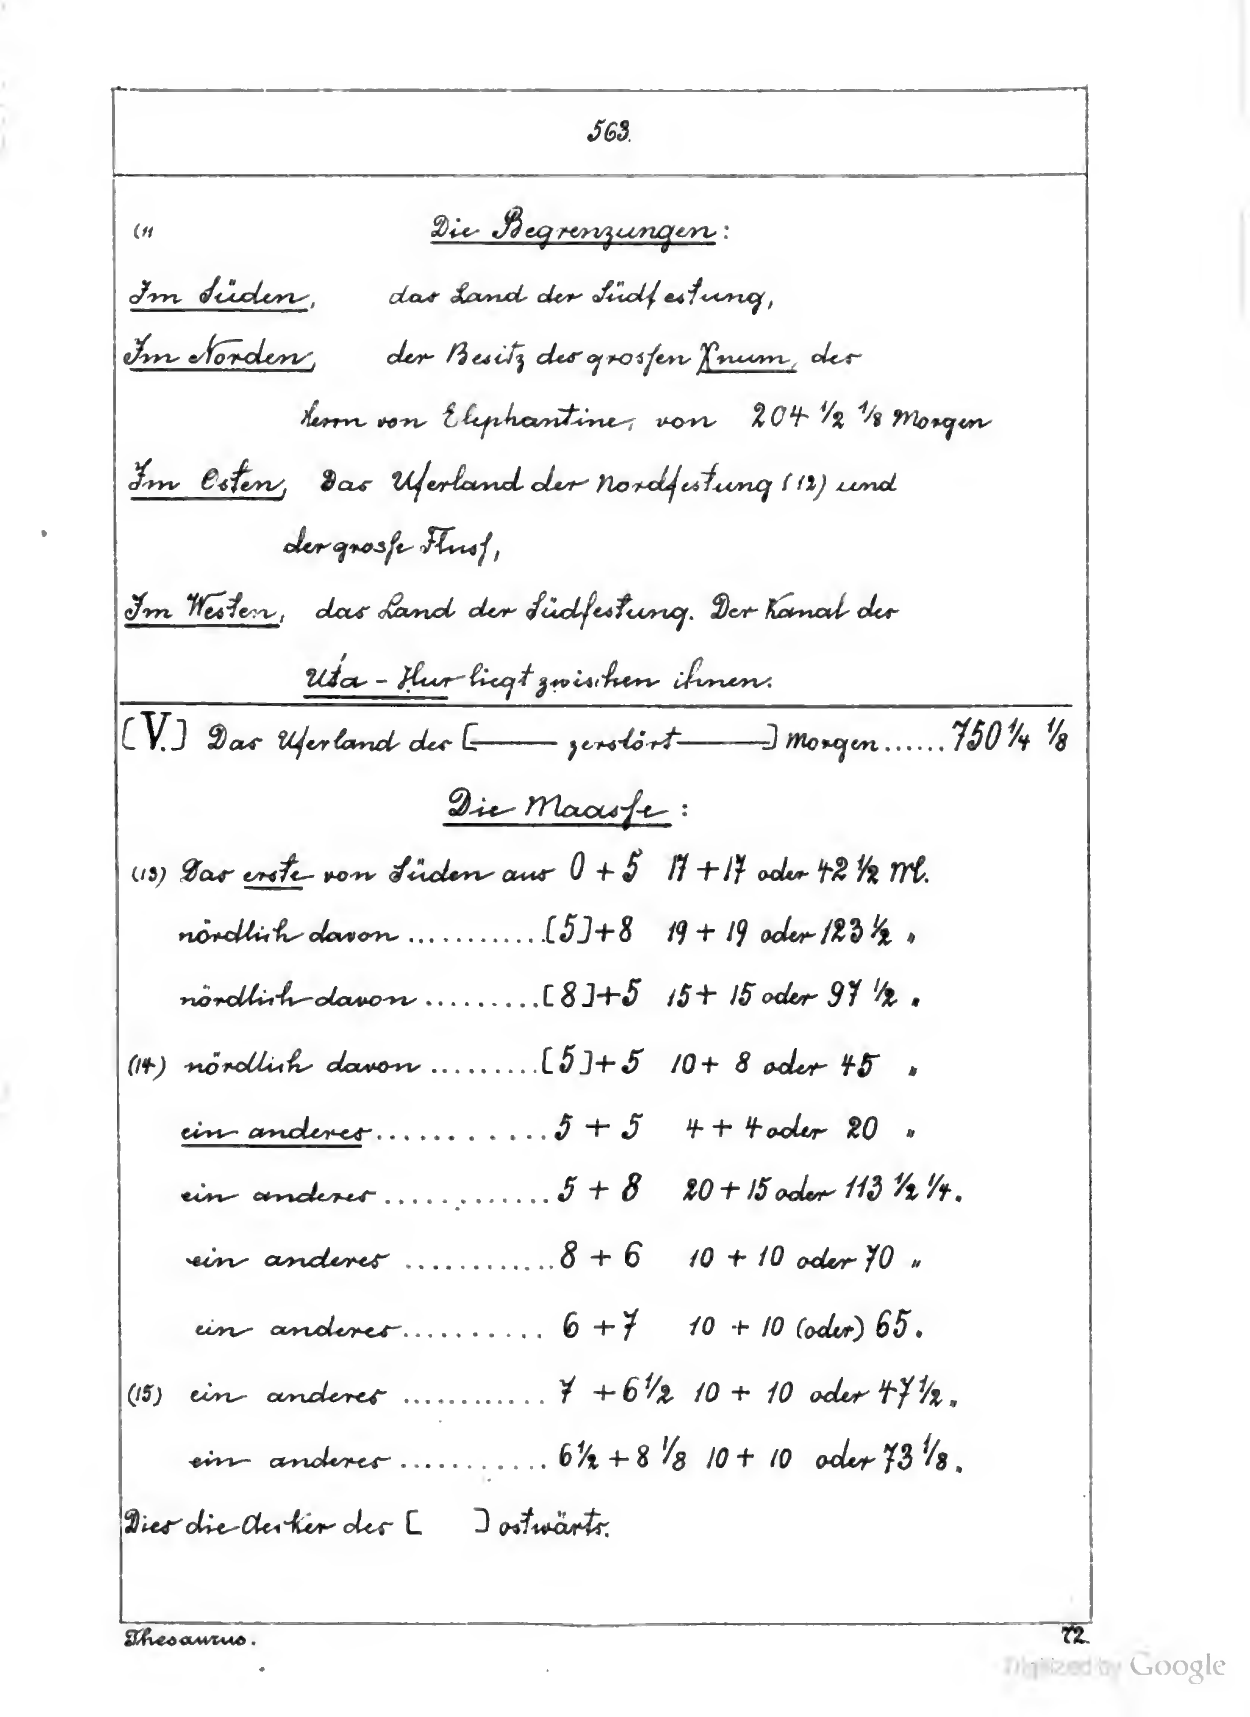 563.
(11 Die Begrenzungen:
Im Süden, das Land der Südfestung,
Im Norden, der Besitz des grossen Xnum, des
Herrn von Elephantine, von 204 ½ ⅛ Morgen
Im Osten, Das Uferland der Nordfestung (12) und
der grosse Fluss,
Im Westen, das Land der Südfestung. Der Kanal des
Uta-Hur liegt zwischen ihnen.
[V.] Das Uferland des [—— zerstört ——] Morgen......750 ¼ ⅛
Die Maasse:
(13) Das erste von Süden aus 0 + 5 17 + 17 oder 42 ½ M.
nördlich davon ............[5]+8 19 + 19 oder 123 ½ "
nördlich davon .........[8]+5 15 + 15 oder 97 ½ "
(14) nördlich davon .........[5]+5 10 + 8 oder 45 "
ein anderes............5 + 5 4 + 4 oder 20 "
ein anderes ............5 + 8 20 + 15 oder 113 ½ ¼ "
ein anderes ............8 + 6 10 + 10 oder 70 "
ein anderes.......... 6 + 7 10 + 10 (oder) 65 "
(15) ein anderes ............ 7 + 6 ½ 10 + 10 oder 47 ½ "
ein anderes ........... 6 ½ + 8 ⅛ 10 + 10 oder 73 ⅛ "
Dies die Aecker des [ ] ostwärts.
Thesaurus. 72.
Digitized by Google